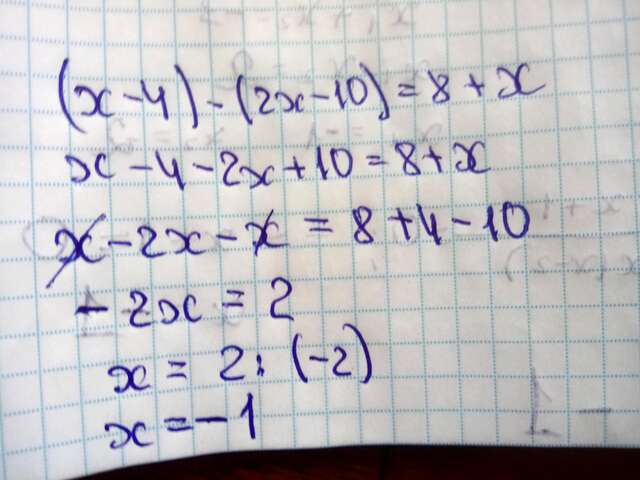 (x-4)-(2x-10)=8+x
x-4-2x+10=8+x
x-2x-x=8+4-10
-2x=2
x=2:(-2)
x=-1